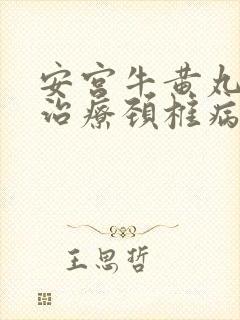 安宫牛黄丸
治療颈椎病
王思哲